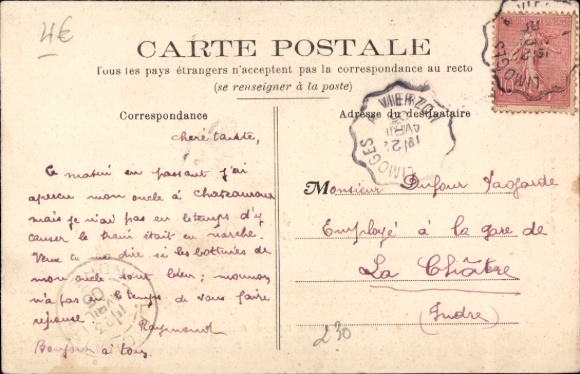 4€
CARTE POSTALE
Tous les pays étrangers n'acceptent pas la correspondance au recto
(se renseigner à la poste)
Correspondance
Adresse du destinataire
LIMOGES A VIERZON
AVRIL
chère tante,
Ce matin en passant j'ai
aperçu mon oncle à Chateauroux
mais je n'ai pas eu le temps d'y
causer le train était en marche.
Veux tu me dire si les bottines de
mon oncle sont bien; maman
n'a pas eu le temps de vous faire
réponse.
Raymond
Bonjour à tous
Monsieur Dufour
Employé à la gare de
La Châtre
(Indre)
230